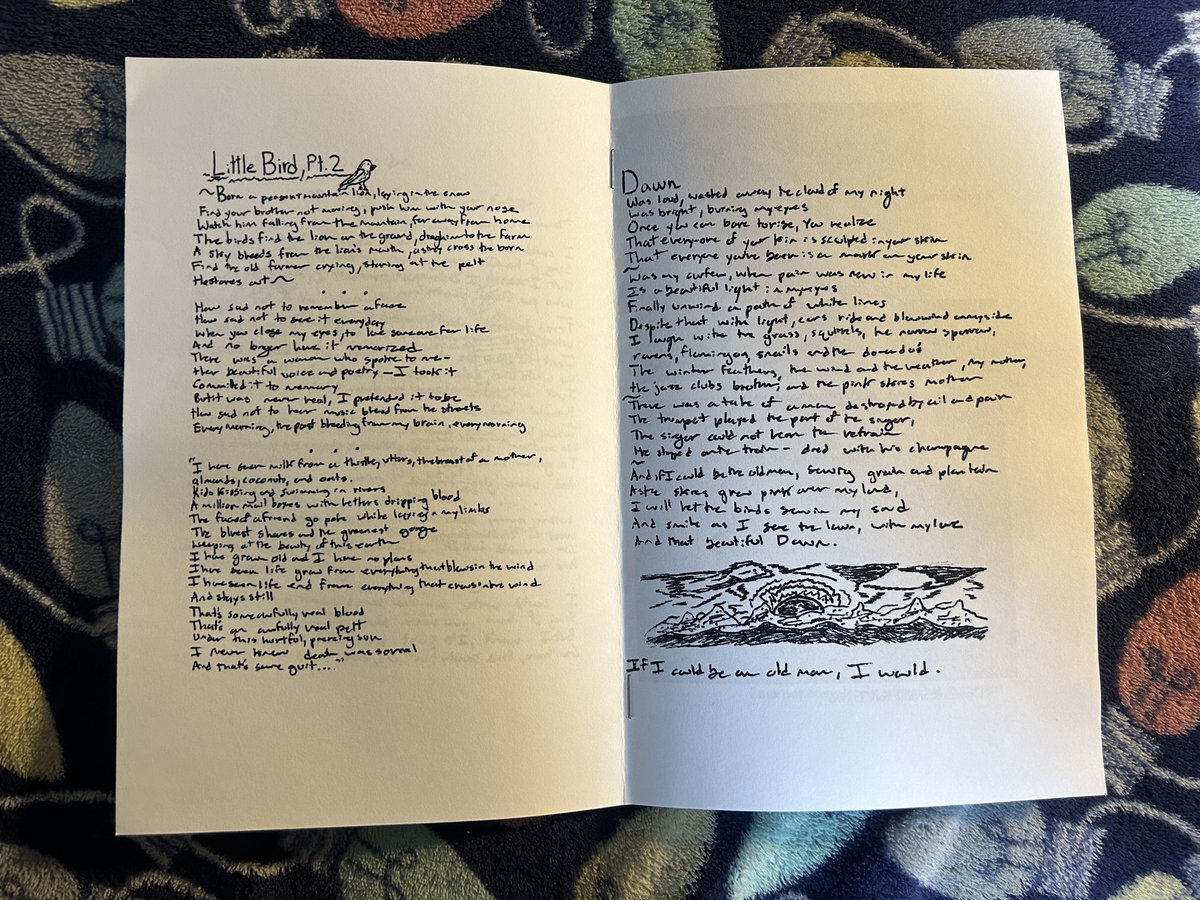 Little Bird, Pt.2
~Born a peasant mountain lion, laying in the snow
Find your brother not moving, push him with your nose
Watch him falling from the mountain, far away from home
The birds find the lion on the ground, drag him to the farm
A sky bleeds from the lion's mouth, ashes cross the barn
Find the old farmer crying, staring at the pelt
He stares out~
How sad not to remember a face
How sad not to see it everyday
When you close my eyes, to see someone for life
And no longer have it memorized
There was a woman who spoke to me-
Her beautiful voice and poetry - I took it
Committed it to memory
But it was never real, I pretended it to be
How sad not to hear music bleed from the streets
Every morning, the past bleeding from my brain, every morning
"I have seen milk from a thistle, utters, the breast of a mother,
almonds, coconuts, and oats.
Kids kissing and swimming in rivers
A million mail boxes with letters dripping blood
The face of a friend go pale white laying in my limbs
The bluest shores and the greenest gorge
Weeping at the beauty of this earth
I have grown old and I have no plans
I have seen life grow from everything that blows in the wind
I have seen life end from everything that crows in the wind
And stays still
That's some awfully real blood
That's an awfully real pelt
Under this hurtful, piercing sun
I never knew death was so real
And that's sure guilt...."
Dawn
Was loud, wasted away the cloud of my night
Was bright, burning my eyes
Once you can bare to rise, You realize
That everyone of your kin is sculpted in your skin
That everyone you've been is a mark on your skin
~Was my curfew, when pain was new in my life
Is a beautiful light in my eyes
Finally unwind a path of white lines
Despite that with light, cars ride and blow wind on my side
I laugh with the grass, squirrels, the narrow sparrow,
ravens, flamingos, snails and the
The winter feathers, the wind and the weather, my mother,
the jazz clubs brother, and the pink skies mother
~There was a tale of a man destroyed by evil and pain
The trumpet played the part of the singer,
The singer could not bear the refrain
He stayed on the train - died with his champagne
~
And if I could be the old man, sewing grain and plantain
As the skies grew pink over my land,
I will let the birds sew in my sand
And smile as I see the lawn, with my love
And that beautiful Dawn.
If I could be an old man, I would.